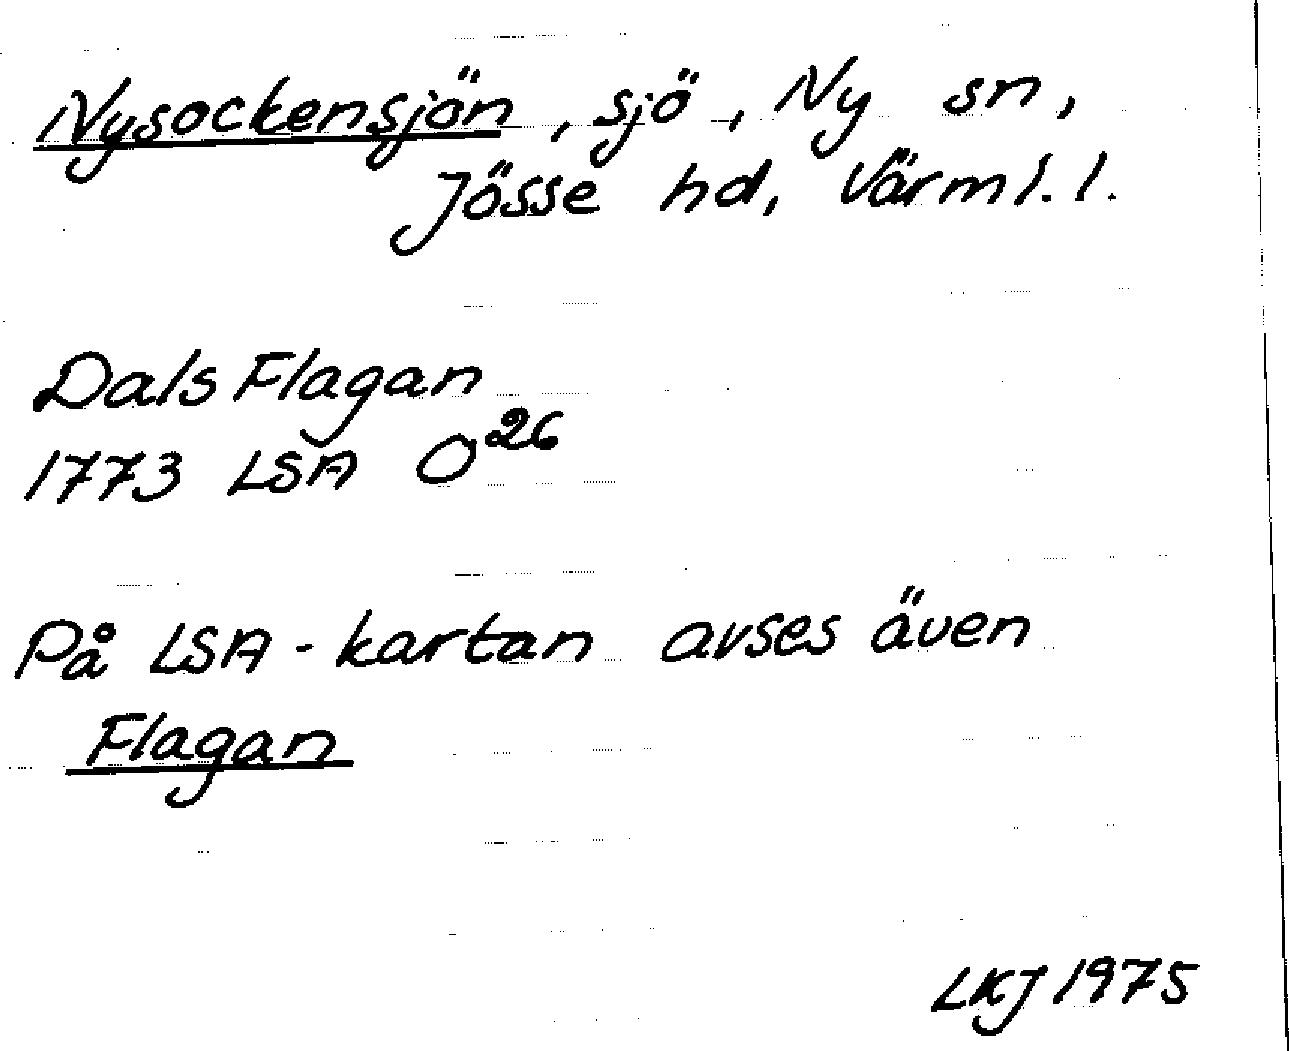 Nysockensjön, sjö, Ny sn,
Jösse hd, Värml. l.
Dals Flagan
1773 LSA O26
På LSA-kartan avses även
Flagan
LKJ 1975